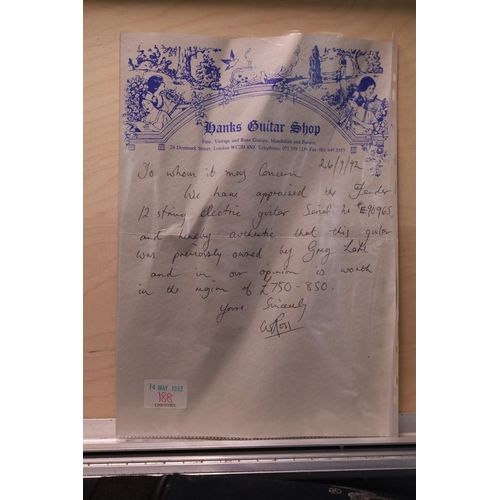 Hanks Guitar Shop
Fine, Vintage and Bass Guitars, Mandolins and Banjos
24 Denmark Street, London WC2H 8NJ. Telephone: 071 379 1139 Fax: 081
To whom it may Concern 26/9/92
We have appraised the Fender
12 string electric guitar Serial No E90965
and hereby authentic that this guitar
was previously owned by Greg Lake
and in our opinion is worth
in the region of £750 - 850.
Yours Sincerely
14 MAY 1993
188
CHRISTIE'S